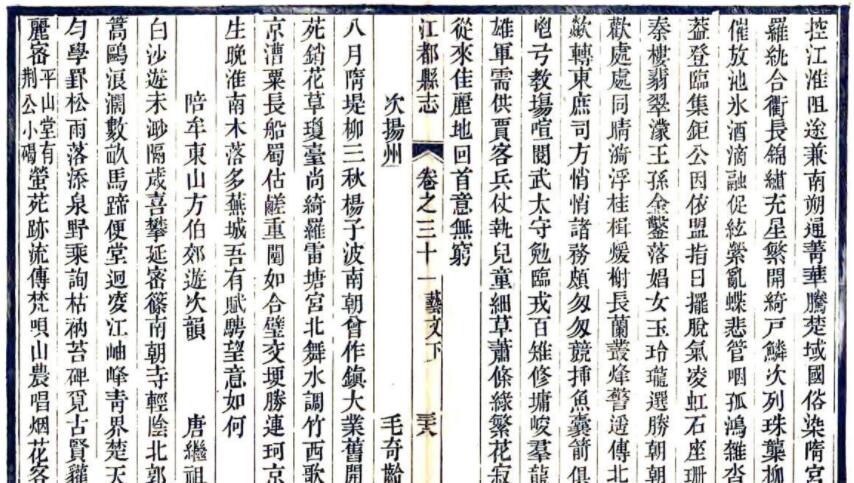 控江淮阻途兼南朔通菁華騰楚域國俗染隋宮
羅紈合衢長錦繡充星繁開綺戸鱗次列珠蘴柳
催放池氷酒滴融促絃縈亂蝶悲管咽孤鴻雜沓
葢登臨集鉅公因依盟指日擺脫氣凌虹石座珊
秦樓翡翠濛王孫金鑿落娼女玉玲瓏選勝朝朝
歡處處同晴漪浮桂楫煖榭長蘭叢烽警遥傳北
歘轉東庶司方悄悄諸務頗匆匆競揷魚櫜箭俱
咆弓教塲喧閱武太守勉臨戎百雉修墉峻羣龍
雄軍需供賈客兵仗執兒童細草蕭條綠繁花寂
從來佳麗地回首意無窮
江都縣志 卷之三十一 藝文下 三六
次揚州 毛奇齡
八月隋堤柳三秋楊子波南朝曾作鎮大業舊開
苑銷花草瓊臺尚綺羅雷塘宮北舞水調竹西歌
京漕粟長船蜀估鹺重闉如合璧交埂勝連珂京
生晩淮南木落多蕪城吾有賦騁望意如何
陪牟東山方伯郊遊次韻 唐繼祖
白沙遊未渺隔歲喜攀延密篠南朝寺輕陰北郭
篙鷗浪濶數畝馬蹄便堂迥凌江岫峰靑界楚天
勻學罫松雨落添泉野乘詢枯衲苔碑覓古賢蘿
麗密平山堂有荆公小碣螢苑跡流傳梵唄山農唱烟花客